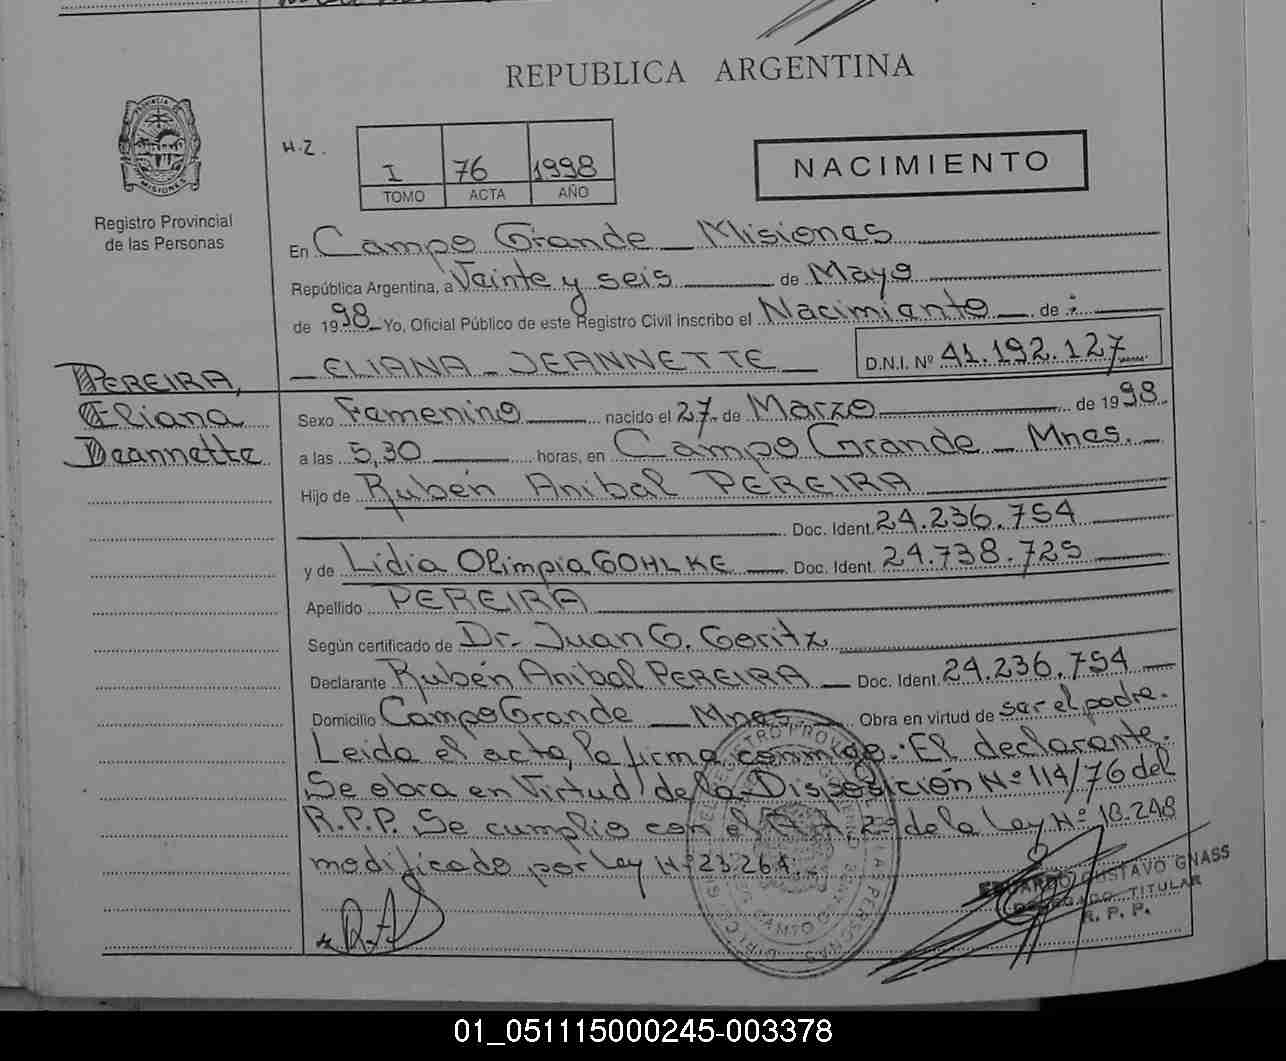 REPUBLICA ARGENTINA
PROVINCIA DE
MISIONES
Registro Provincial
de las Personas
H.Z.
I 76 1998
TOMO ACTA AÑO
NACIMIENTO
En Campo Grande Misiones
República Argentina, a Veinte y seis de Mayo
de 1998 Yo, Oficial Público de este Registro Civil inscribo el Nacimiento de :
ELIANA JEANNETTE D.N.I. Nº 41.192.127
PEREIRA,
Eliana
Jeannette
Sexo Femenino nacido el 27 de Marzo de 1998
a las 5,30 horas, en Campo Grande - Mnes.
Hijo de Rubén Anibal PEREIRA
Doc. Ident. 24.236.754
y de Lidia Olimpia GOHLKE Doc. Ident. 24.738.725
Apellido PEREIRA
Según certificado de Dr. Juan G. Goritz
Declarante Rubén Anibal PEREIRA Doc. Ident. 24.236.754
Domicilio Campo Grande - Mnes Obra en virtud de ser el padre.
Leida el acta, la firma conmigo: El declarante.
Se obra en Virtud de la Disposición Nº 114/76 del
R.P.P. Se cumplio con el Art. 2º de la Ley Nº 18.248
modificado por Ley Nº 23.264.
EDUARDO GUSTAVO GNASS
DELEGADO TITULAR
R. P. P.
01_051115000245-003378